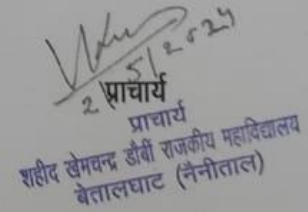 2/5/2024
प्राचार्य
प्राचार्य
शहीद खेमचन्द्र डौर्बी राजकीय महाविद्यालय
बेतालघाट (नैनीताल)